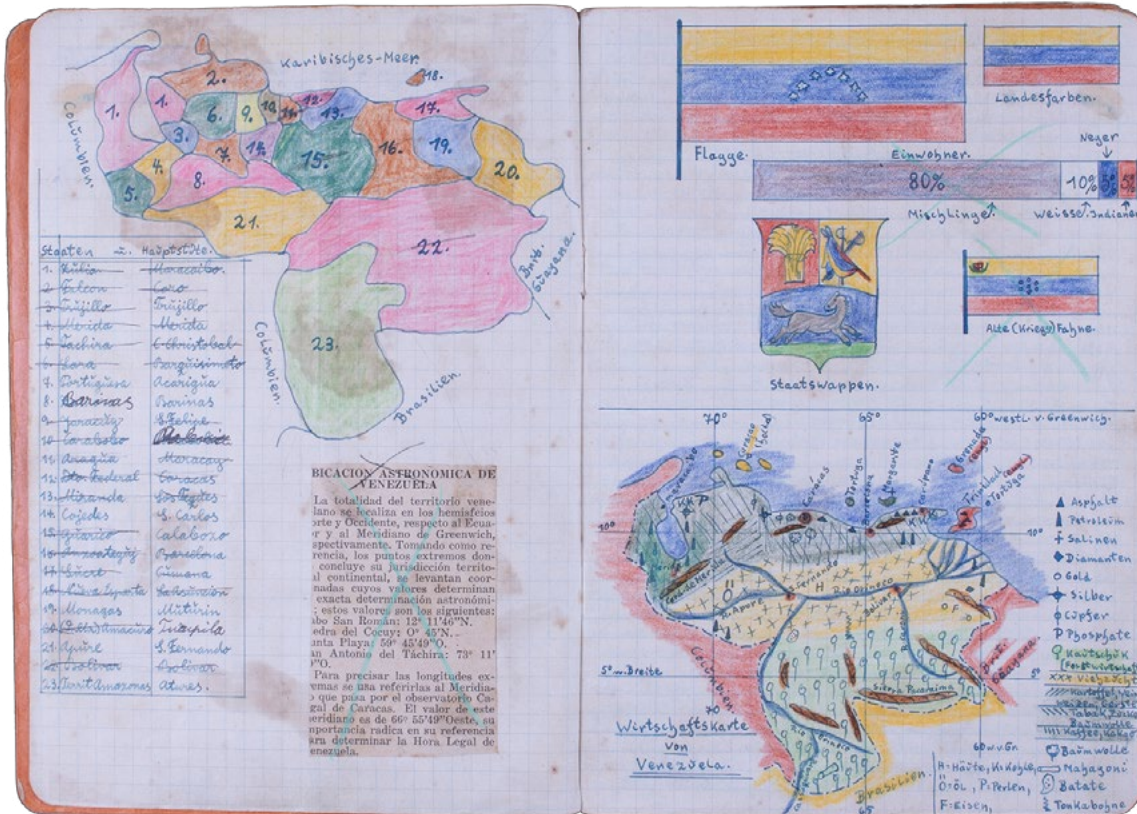 Karibisches-Meer
Columbien.
1.
1.
2.
3.
4.
5.
6.
7.
8.
9.
10.
11.
12.
13.
14.
15.
16.
17.
18.
19.
20.
21.
22.
23.
Brit. Guayana.
Columbien.
Brasilien.
Staaten u. Hauptstäte.
1. Zulia Maracaibo.
2. Falcon Coro
3. Trujillo Trujillo
4. Merida Merida
5. Tachira S. Christobal
6. Lara Barquisimeto
7. Portuguesa Acarigua
8. Barinas Barinas
9. Yaracuy S. Felipe
10. Carabobo
11. Aragua Maracay
12. Federal Caracas
13. Miranda Los Teques
14. Cojedes S. Carlos
15. Guarico Calabozo
16. Anzoategui Barcelona
17. Sucre Cumana
18. Nueva Esparta
19. Monagas Maturin
20. Amacuro
21. Apure S. Fernando
22. Bolivar Bolivar
23. Territ Amazonas Atures.
BICACION ASTRONOMICA DE
VENEZUELA
La totalidad del territorio vene-
lano se localiza en los hemisfeios
orte y Occidente, respecto al Ecua-
or y al Meridiano de Greenwich,
spectivamente. Tomando como re-
rencia, los puntos extremos don-
concluye su jurisdicción territo-
al continental, se levantan coor-
nadas cuyos valores determinan
exacta determinación astronómi-
; estos valores son los siguientes:
abo San Román: 12° 11'46"N.
edra del Cocuy: O° 45'N.
anta Playa: 59° 45'49"O.
an Antonio del Táchira: 73° 11'
"O.
Para precisar las longitudes ex-
emas se usa referirlas al Meridia-
o que pasa por el observatorio Ca-
gal de Caracas. El valor de este
eridiano es de 66° 55'49"Oeste, su
mportancia radica en su referencia
ara determinar la Hora Legal de
enezuela.
Flagge.
Landesfarben.
Einwohner.
Neger
80%
10%
5%
5%
Mischlinge.
Weisse.
Indianer
Staatswappen.
Alte (Kriegs) Fahne.
70°
65°
60° westl. v. Greenwich.
Maracaibo
Curaçao
Caracas
Tortuga
Barcelona
Margarita
Carúpano
Grenada
Trinidad
10°
10°
K H P
Merida
S. Fernando
R. Apure
Rio Orinoco
H
Bolivar
Ö F
Columbien.
Brit. Guayana
5° n. Breite
5°
Sierra Pacaraima
70
Wirtschaftskarte
von
Venezuela.
Brasilien.
65
60 w. v. Gn
Asphalt
Petroleum
Salinen
Diamanten
Gold
Silber
Cupfer
P Phosphate
Kautschuk
(Forstwirtschaft)
xxx Viehzucht
Baumwolle
Kaffee, Kakao
Baumwolle
Mahagoni
Batate
Tonkabohne
H = Häute, K = Kohle,
Ö = ÖL, P = Perlen,
F = Eisen,